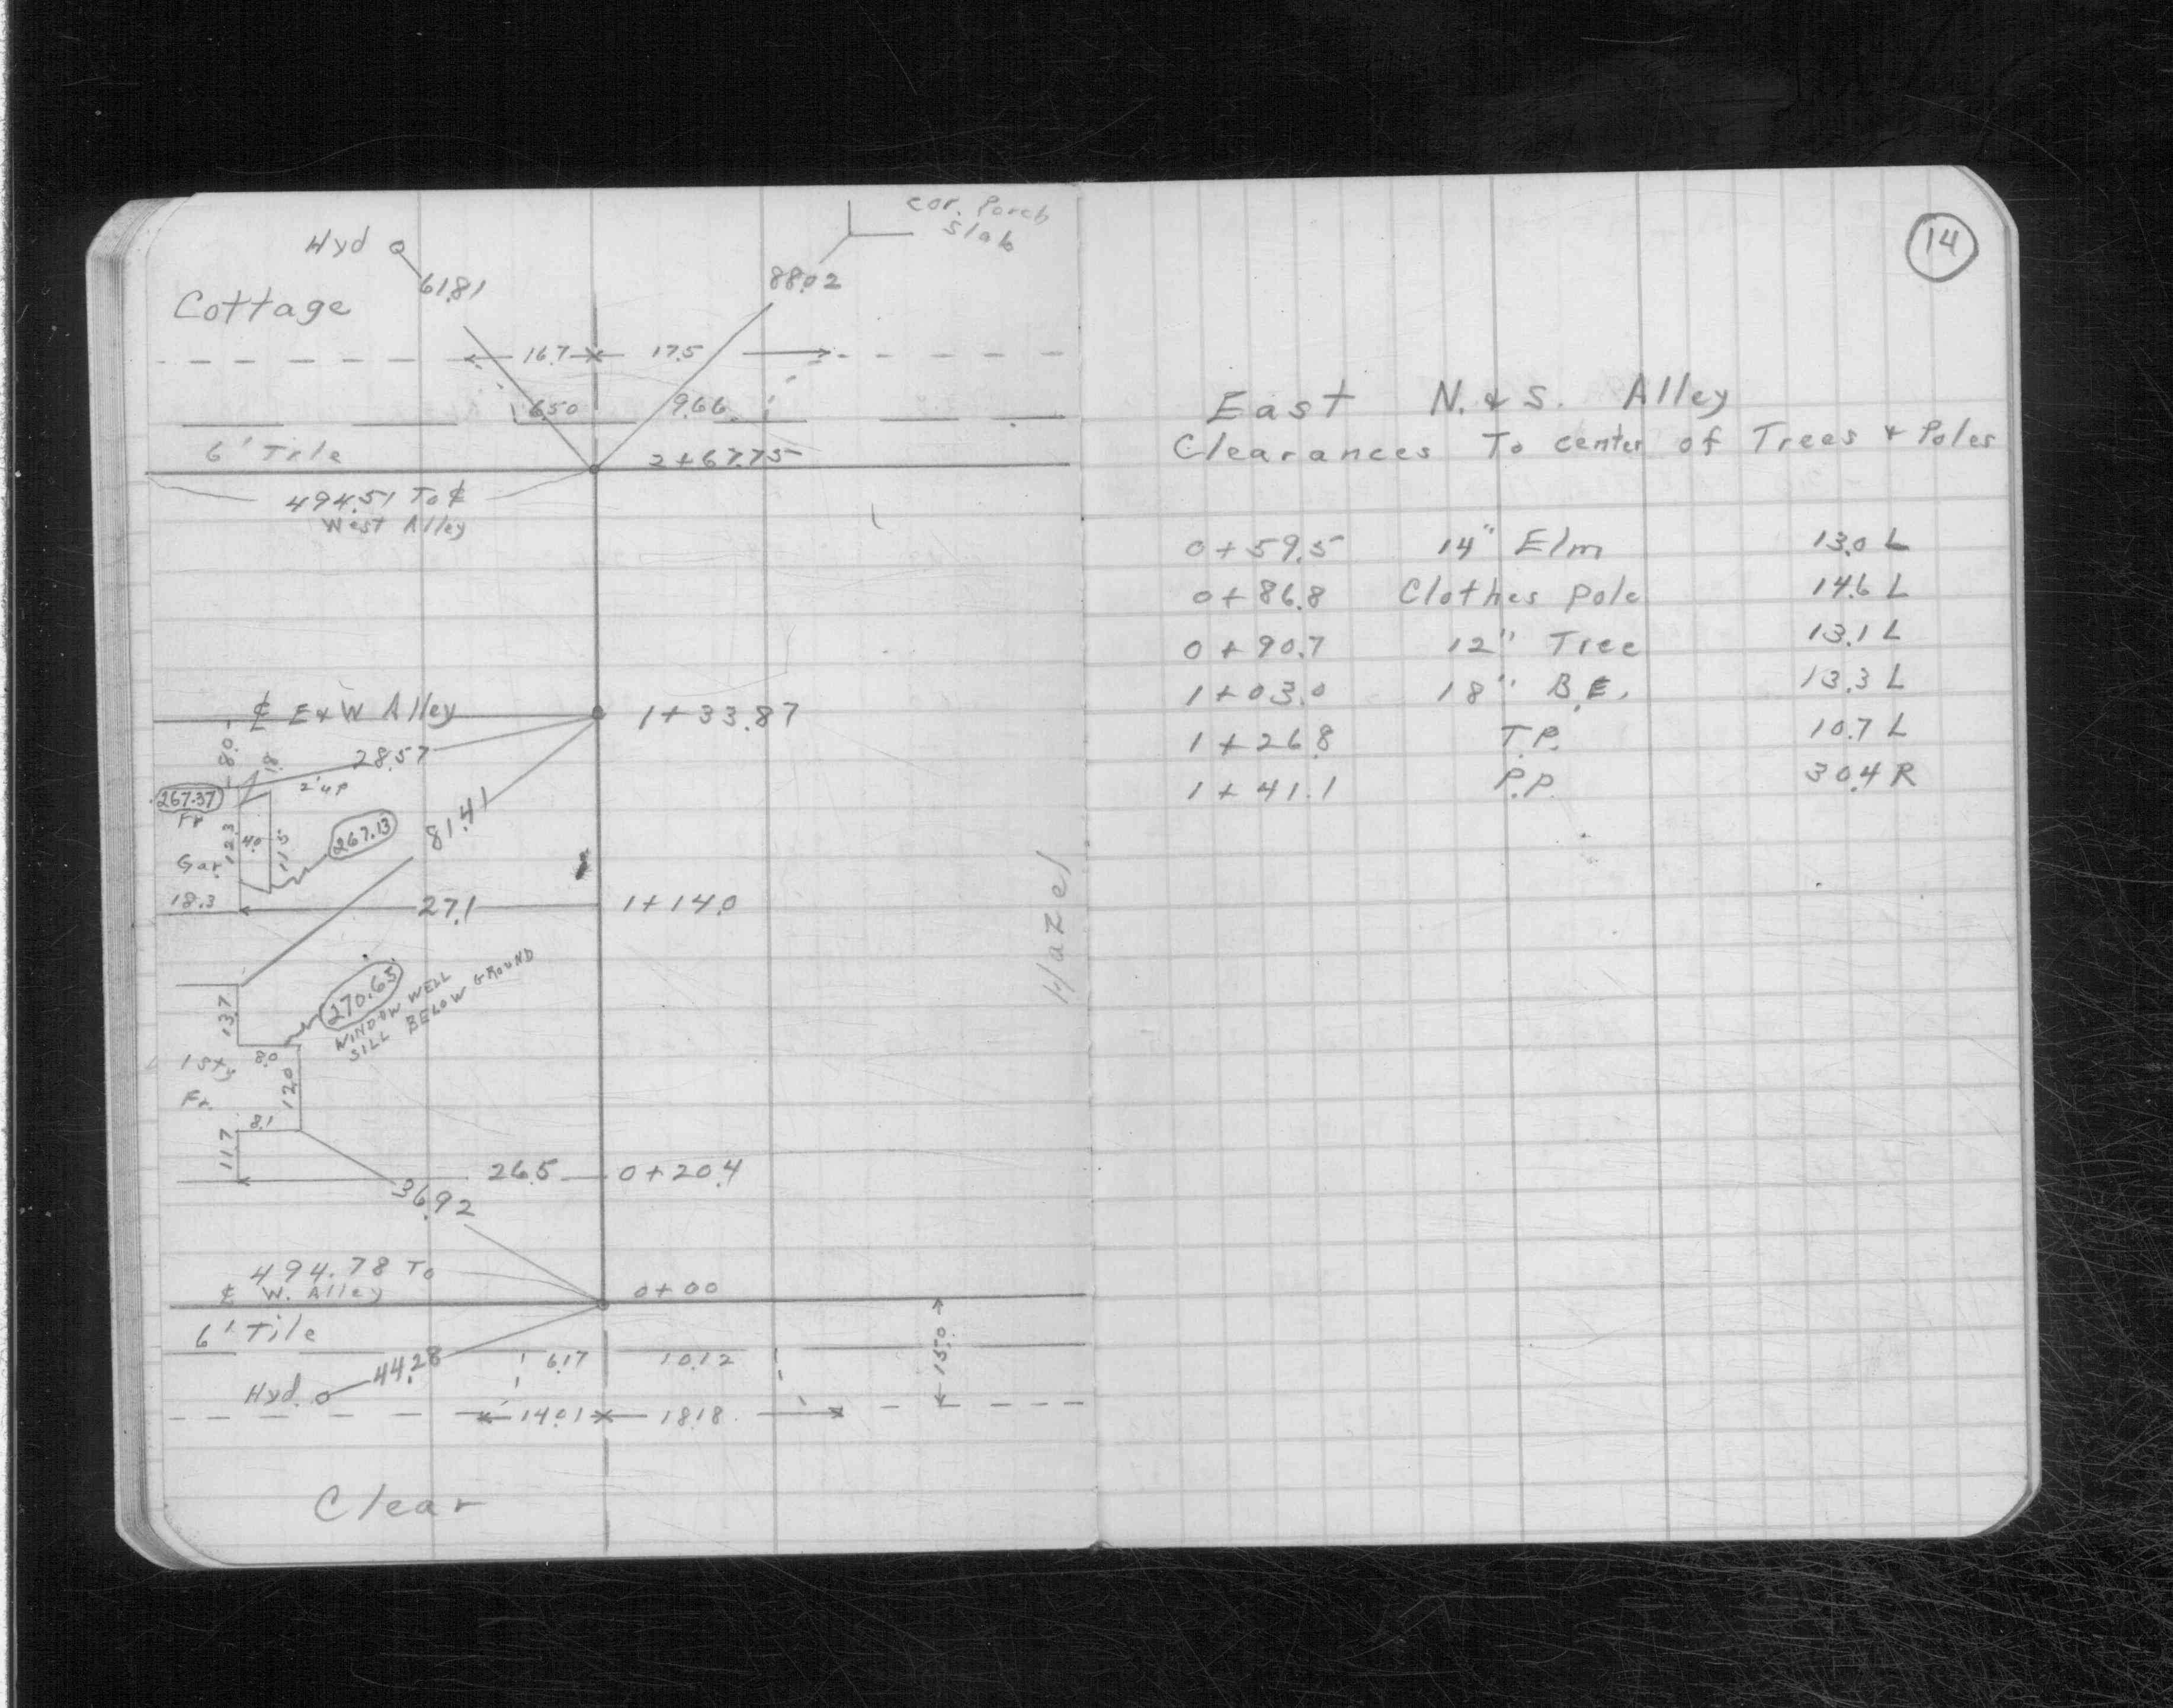 Hyd
cor. Porch
Slab
61.81
88.02
Cottage
16.7 17.5
6.50 9.66
6' Tile
2+67.75
494.51 To ℄
West Alley
℄ E & W Alley
1+33.87
8.0
18
28.57
2' up
267.37
Fr
12.3
4.0
11.5
267.13
81.41
Gar.
18.3
27.1
1+14.0
Hazel
270.65
WINDOW WELL
SILL BELOW GROUND
13.7
1 Sty
8.0
12.0
Fr.
8.1
11.7
26.5
0+20.4
36.92
494.78 To
℄ W. Alley
0+00
6' Tile
15.0
44.28
6.17 10.12
Hyd.
14.01 18.18
Clear
14
East N. & S. Alley
Clearances To center of Trees & Poles
0+59.5 14" Elm 13.0 L
0+86.8 Clothes Pole 14.6 L
0+90.7 12" Tree 13.1 L
1+03.0 18" B.E. 13.3 L
1+26.8 T.P. 10.7 L
1+41.1 P.P. 30.4 R